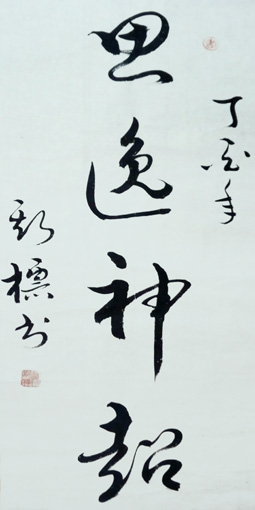 丁亥年
思逸神超
標书